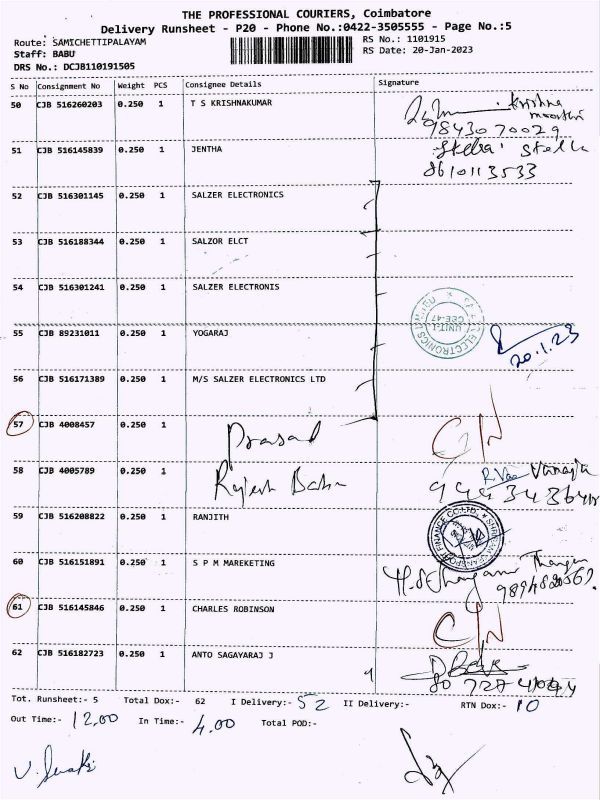 THE PROFESSIONAL COURIERS, Coimbatore
Delivery Runsheet - P20 - Phone No.:0422-3505555 - Page No.:5
Route: SAMICHETTIPALAYAM
RS No.: 1101915
Staff: BABU
RS Date: 20-Jan-2023
DRS No.: DCJB110191505
S No Consignment No Weight PCS Consignee Details Signature
50 CJB 516260203 0.250 1 T S KRISHNAKUMAR Krishna
98430 70029
51 CJB 516145839 0.250 1 JENTHA Stella
8610113533
52 CJB 516301145 0.250 1 SALZER ELECTRONICS
53 CJB 516188344 0.250 1 SALZOR ELCT
54 CJB 516301241 0.250 1 SALZER ELECTRONIS
UNIT-I
55 CJB 89231011 0.250 1 YOGARAJ 20.1.23
56 CJB 516171389 0.250 1 M/S SALZER ELECTRONICS LTD
57 CJB 4008457 0.250 1 Prasad C/N
58 CJB 4005789 0.250 1 Rajesh Babu
59 CJB 516208822 0.250 1 RANJITH
60 CJB 516151891 0.250 1 S P M MAREKETING
61 CJB 516145846 0.250 1 CHARLES ROBINSON C/N
62 CJB 516182723 0.250 1 ANTO SAGAYARAJ J
Tot. Runsheet:- 5 Total Dox:- 62 I Delivery:- 52 II Delivery:- RTN Dox:- 10
Out Time:- 12.00 In Time:- 4.00 Total POD:-